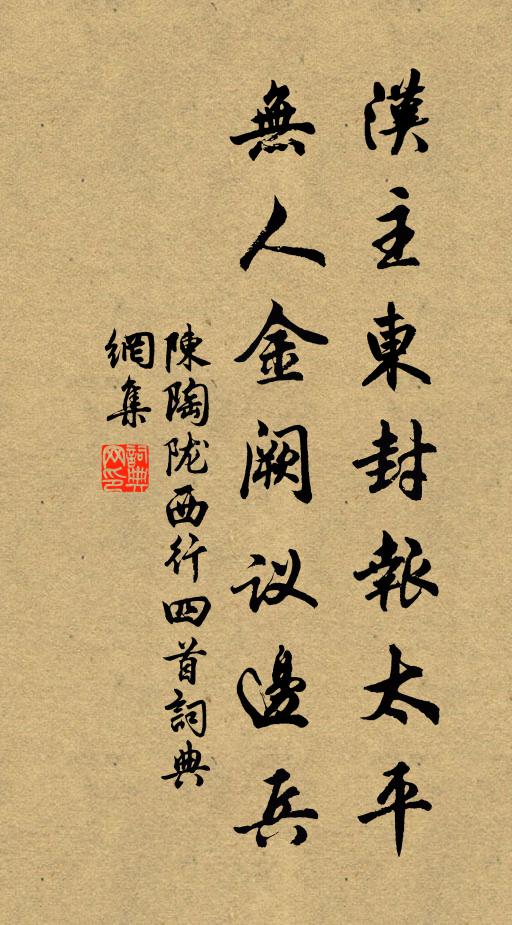 漢主東封報太平
無人金阙议邊兵
陳陶陇西行四首詞典
網集
詞典网印